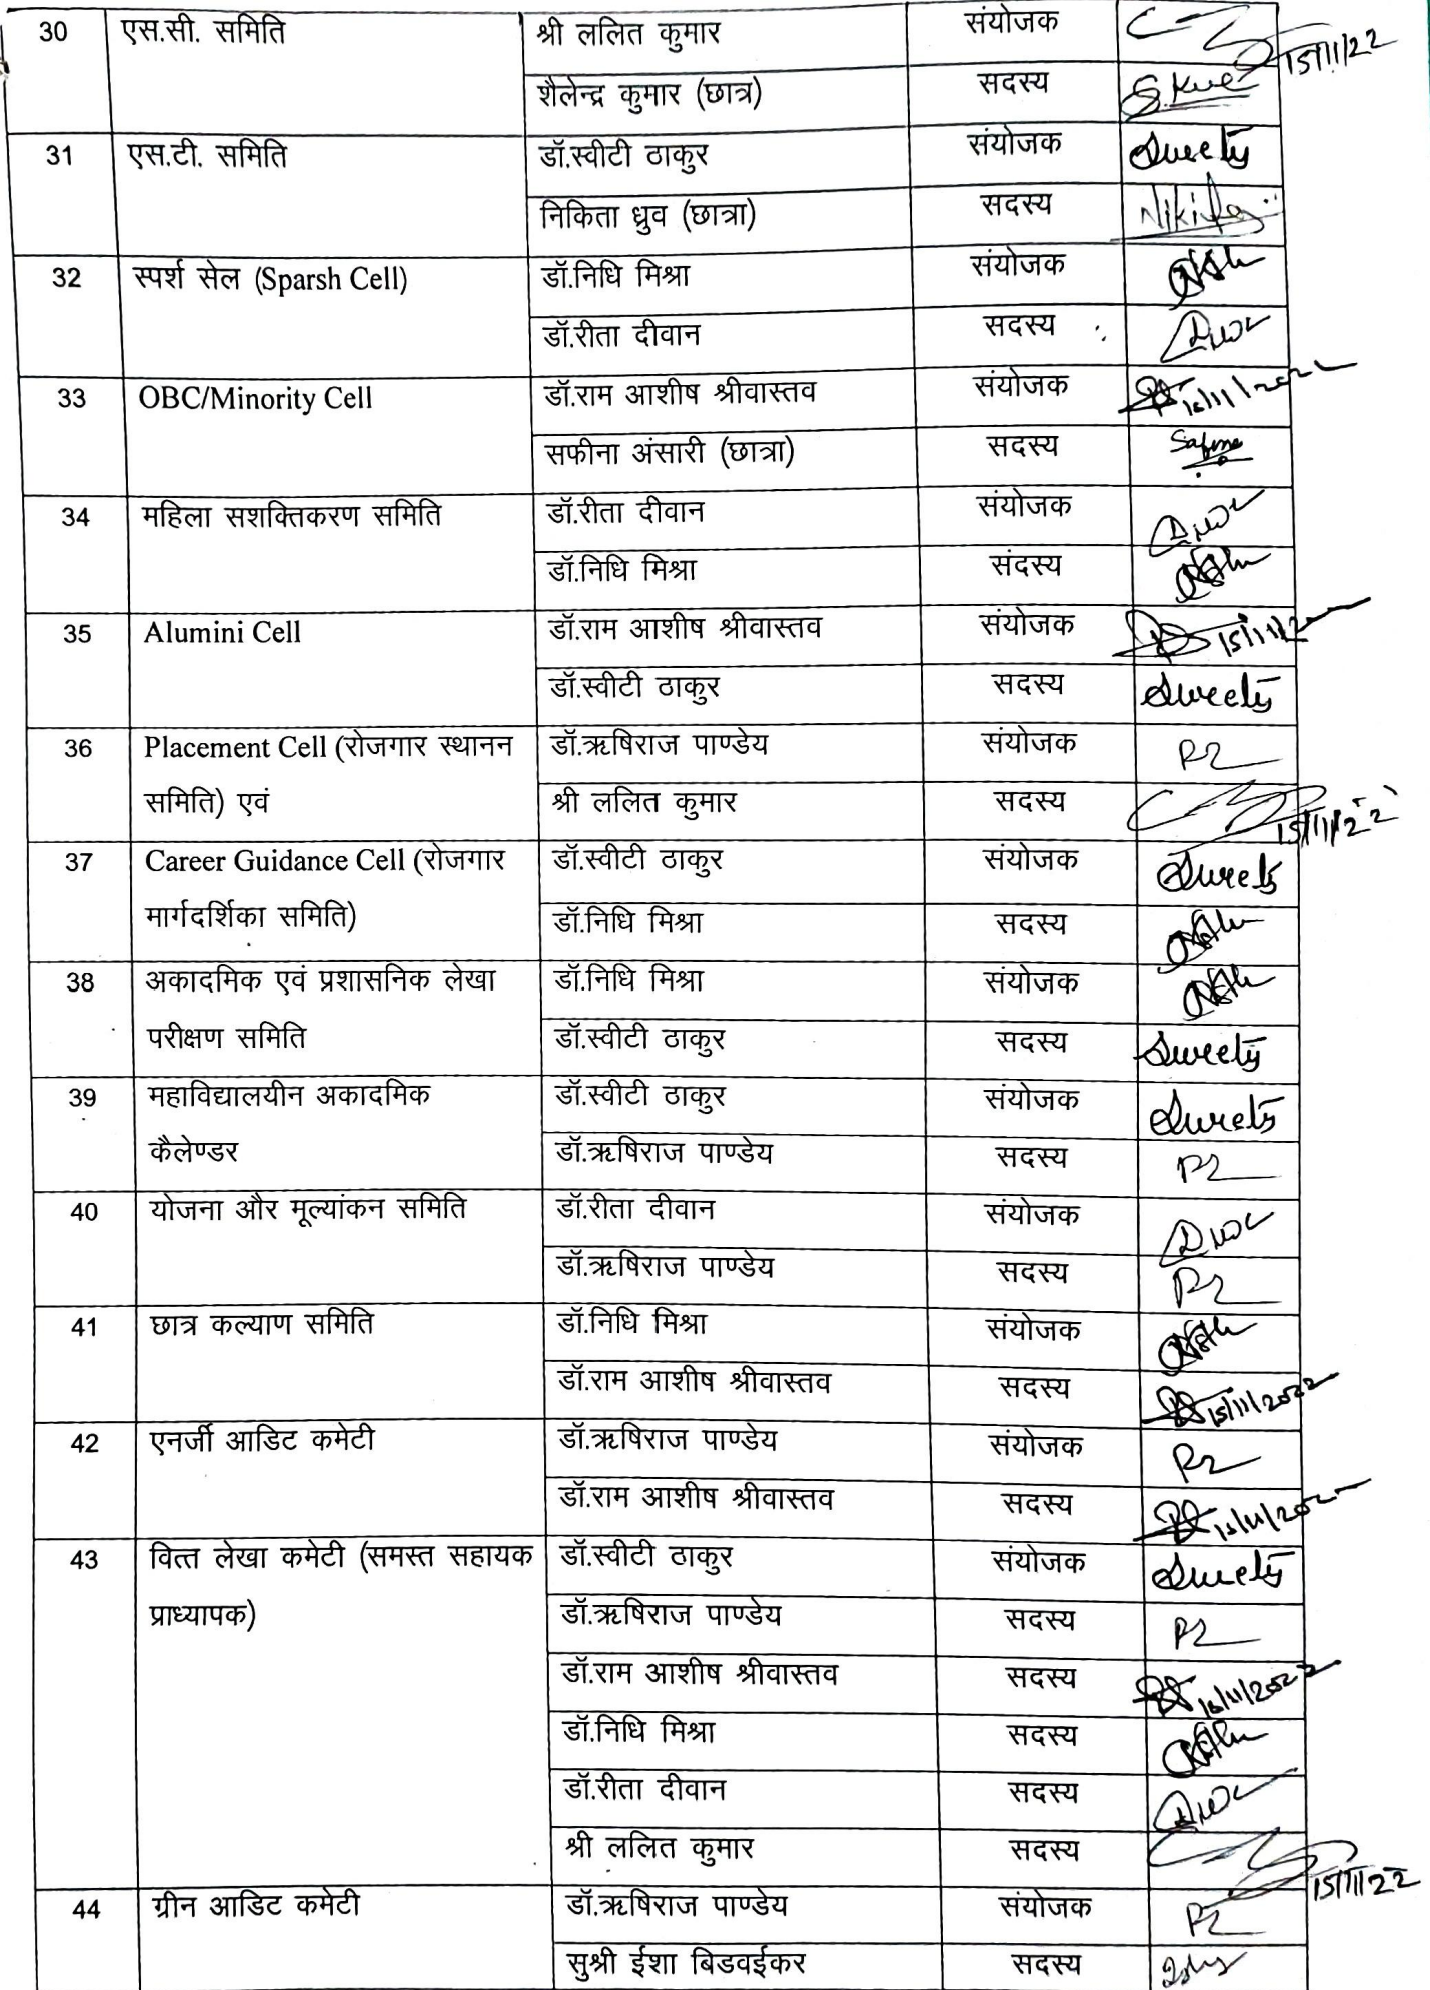 30 एस.सी. समिति श्री ललित कुमार संयोजक 15/11/22
शैलेन्द्र कुमार (छात्र) सदस्य
31 एस.टी. समिति डॉ.स्वीटी ठाकुर संयोजक Sweety
निकिता ध्रुव (छात्रा) सदस्य Nikita
32 स्पर्श सेल (Sparsh Cell) डॉ.निधि मिश्रा संयोजक
डॉ.रीता दीवान सदस्य
33 OBC/Minority Cell डॉ.राम आशीष श्रीवास्तव संयोजक
सफीना अंसारी (छात्रा) सदस्य
34 महिला सशक्तिकरण समिति डॉ.रीता दीवान संयोजक
डॉ.निधि मिश्रा संदस्य
35 Alumini Cell डॉ.राम आशीष श्रीवास्तव संयोजक
डॉ.स्वीटी ठाकुर सदस्य Sweety
36 Placement Cell (रोजगार स्थानन डॉ.ऋषिराज पाण्डेय संयोजक
समिति) एवं श्री ललित कुमार सदस्य 15/11/22
37 Career Guidance Cell (रोजगार डॉ.स्वीटी ठाकुर संयोजक Sweety
मार्गदर्शिका समिति) डॉ.निधि मिश्रा सदस्य
38 अकादमिक एवं प्रशासनिक लेखा डॉ.निधि मिश्रा संयोजक
परीक्षण समिति डॉ.स्वीटी ठाकुर सदस्य Sweety
39 महाविद्यालयीन अकादमिक डॉ.स्वीटी ठाकुर संयोजक Sweety
कैलेण्डर डॉ.ऋषिराज पाण्डेय सदस्य
40 योजना और मूल्यांकन समिति डॉ.रीता दीवान संयोजक
डॉ.ऋषिराज पाण्डेय सदस्य
41 छात्र कल्याण समिति डॉ.निधि मिश्रा संयोजक
डॉ.राम आशीष श्रीवास्तव सदस्य 15/11/2022
42 एनर्जी आडिट कमेटी डॉ.ऋषिराज पाण्डेय संयोजक
डॉ.राम आशीष श्रीवास्तव सदस्य
43 वित्त लेखा कमेटी (समस्त सहायक डॉ.स्वीटी ठाकुर संयोजक Sweety
प्राध्यापक) डॉ.ऋषिराज पाण्डेय सदस्य
डॉ.राम आशीष श्रीवास्तव सदस्य
डॉ.निधि मिश्रा सदस्य
डॉ.रीता दीवान सदस्य
श्री ललित कुमार सदस्य 15/11/22
44 ग्रीन आडिट कमेटी डॉ.ऋषिराज पाण्डेय संयोजक
सुश्री ईशा बिडवईकर सदस्य